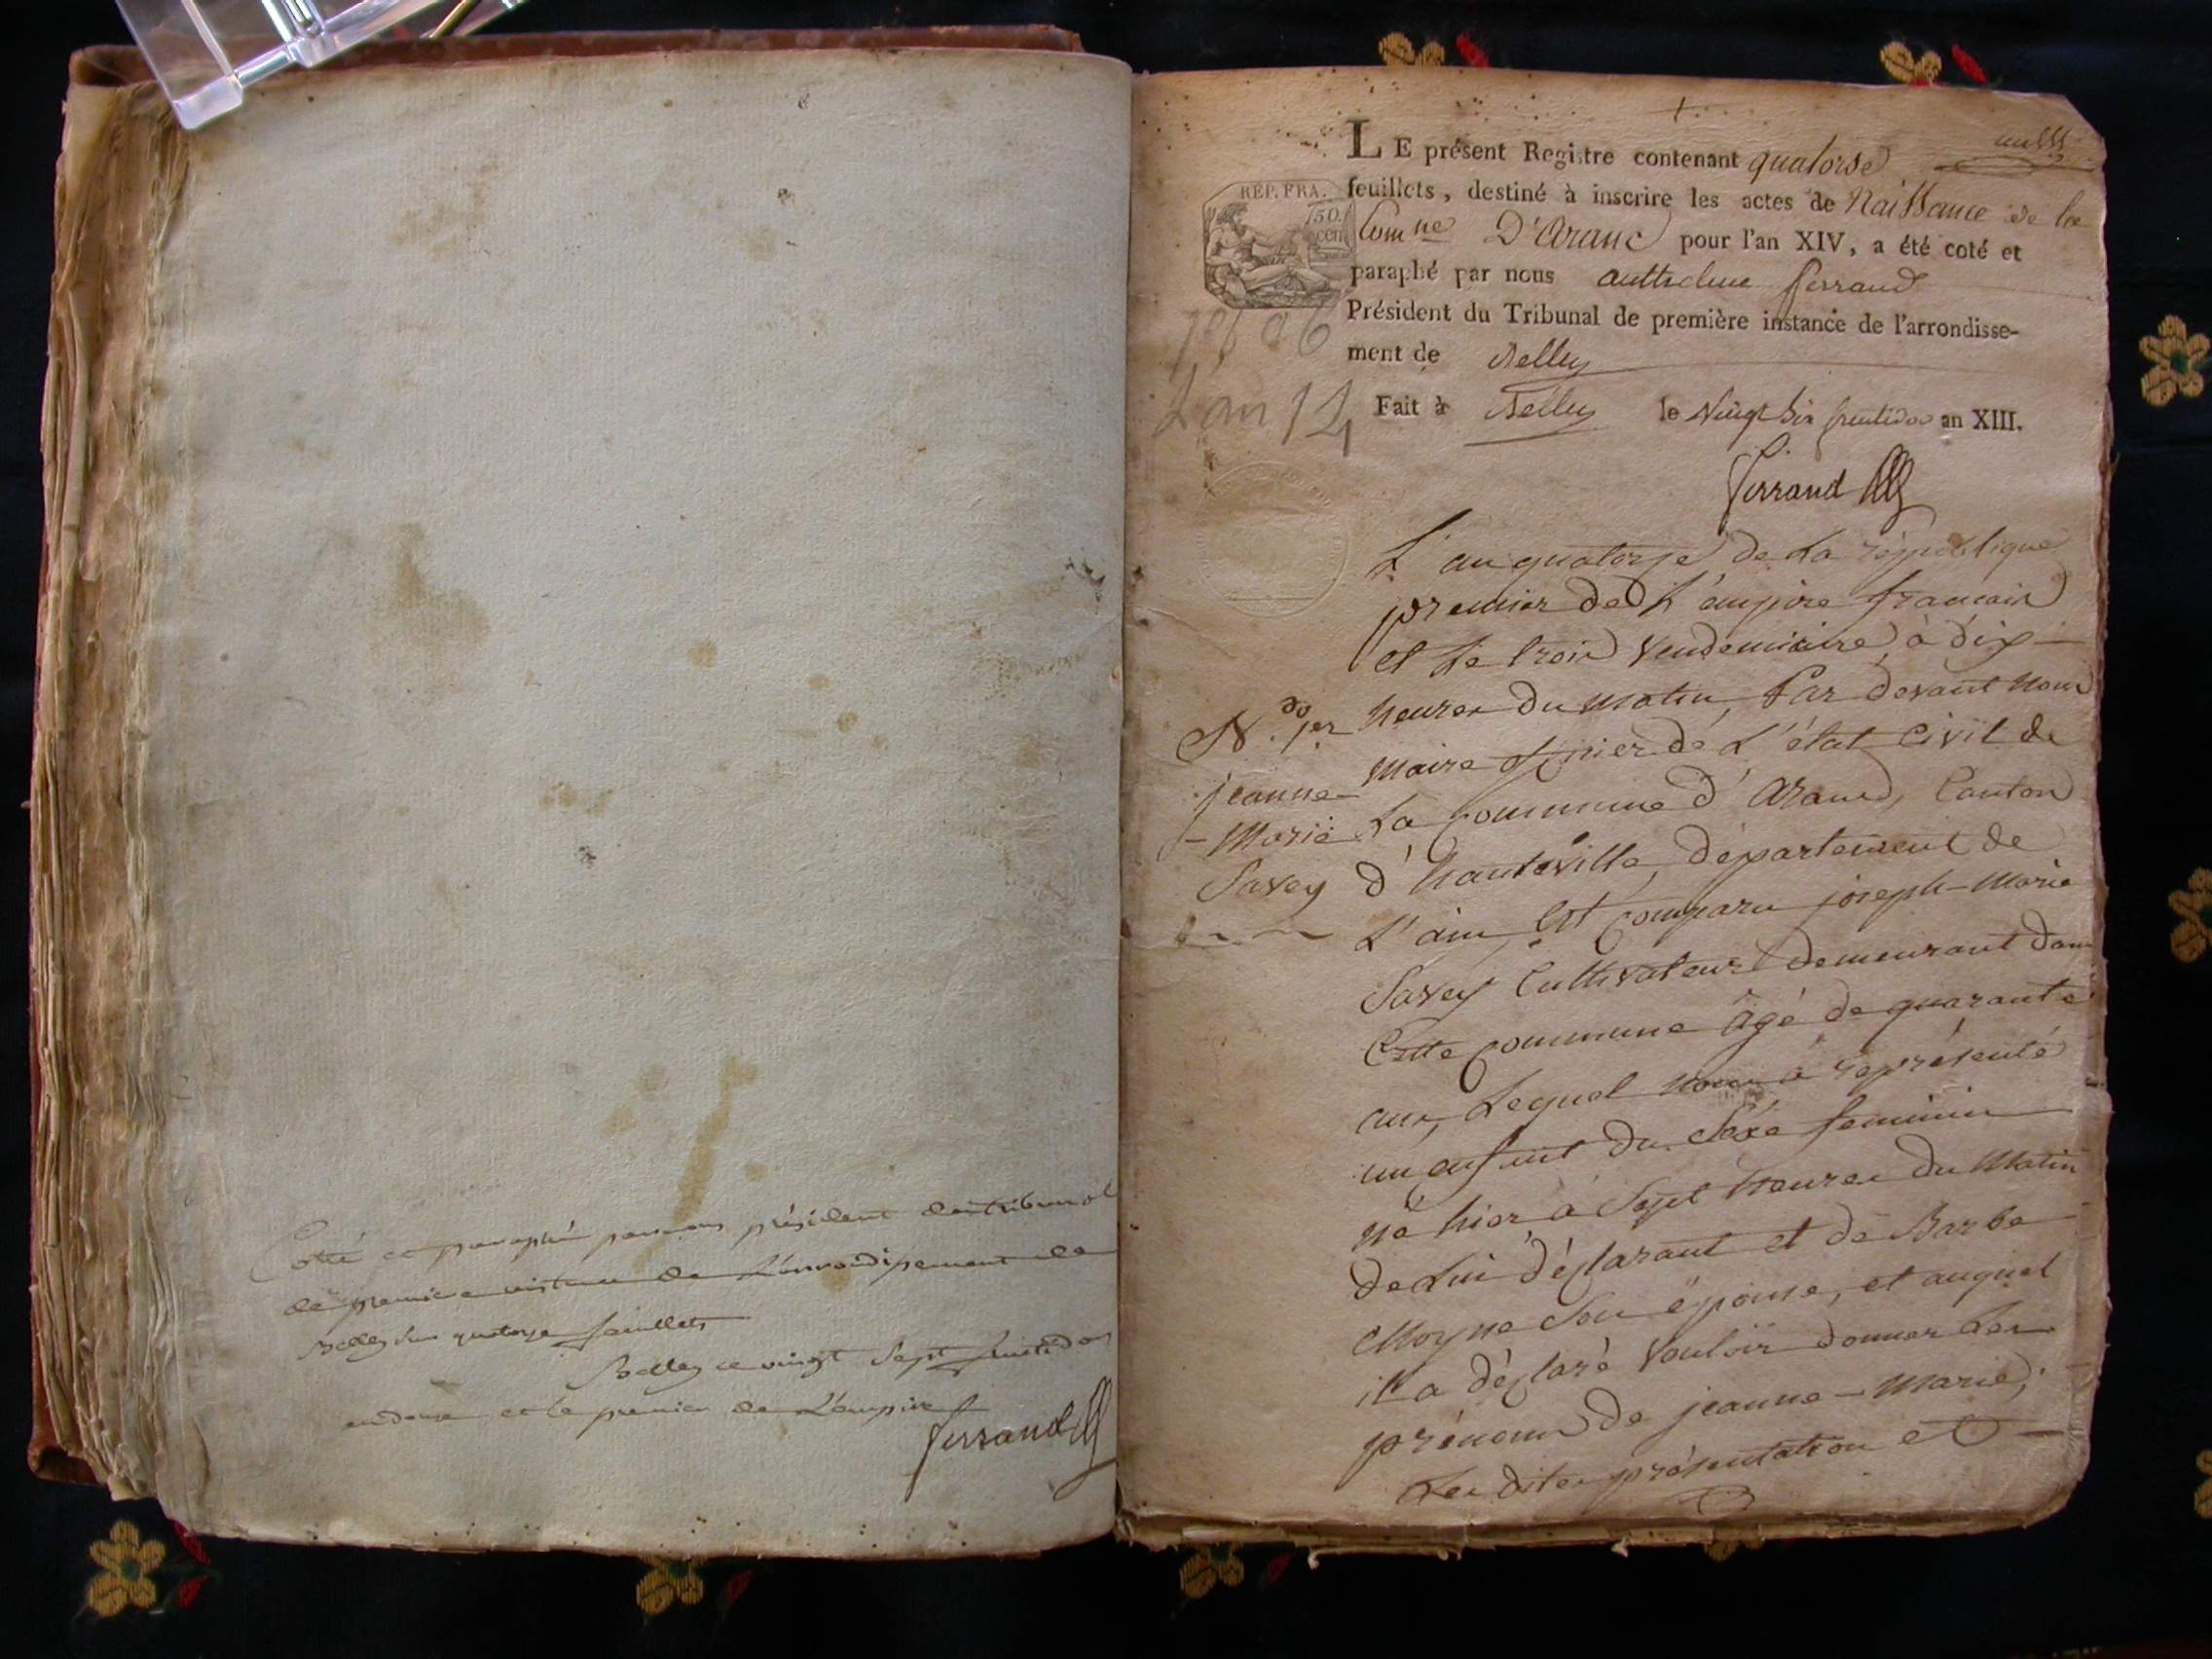 Cotté et paraphé par nous président du tribunal
de premiere instance de L'arrondissement de
Belley sur quatorze feuillets
Belley ce vingt sept fructidor
an douze et le premier de L'empire
ferrand
LE présent Registre contenant quatorse
feuillets, destiné à inscrire les actes de Naissance de la
REP. FRA.
50.
cen
Comne D'Aranc pour l'an XIV, a été coté et
paraphé par nous anthelme ferrand
Président du Tribunal de première instance de l'arrondisse-
ment de Belley
Fait à Belley le Vingt Six fructidor an XIII.
L'an 14
ferrand
L'an quatorze de La république
premier de L'empire francais
et Le trois Vendemiaire, à dix
heures du matin, Par devant nous
N.o 1er
maire officier de L'état Civil de
jeanne-
La Commune d'Aranc, Canton
-Marie
d'hauteville, département de
Savey
L'ain, est Comparu joseph-Marie
Savey Cultivateur demeurant dans
Cette Commune âgé de quarante
ans, Lequel nous a représenté
un enfant du Séxe feminin
né hier à Sept heures du Matin
de Lui déclarant et de Barbe
Moyne Son épouse, et auquel
il a déclaré Vouloir donner Les
prénoms de jeanne-Marie;
Les dites présentation et